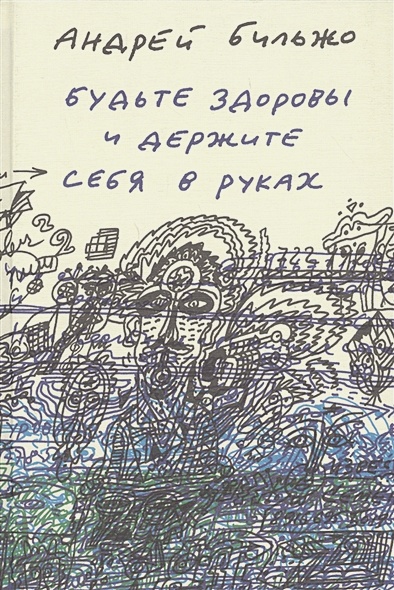 АНДРЕЙ БИЛЬЖО
БУДЬТЕ ЗДОРОВЫ
И ДЕРЖИТЕ
СЕБЯ В РУКАХ